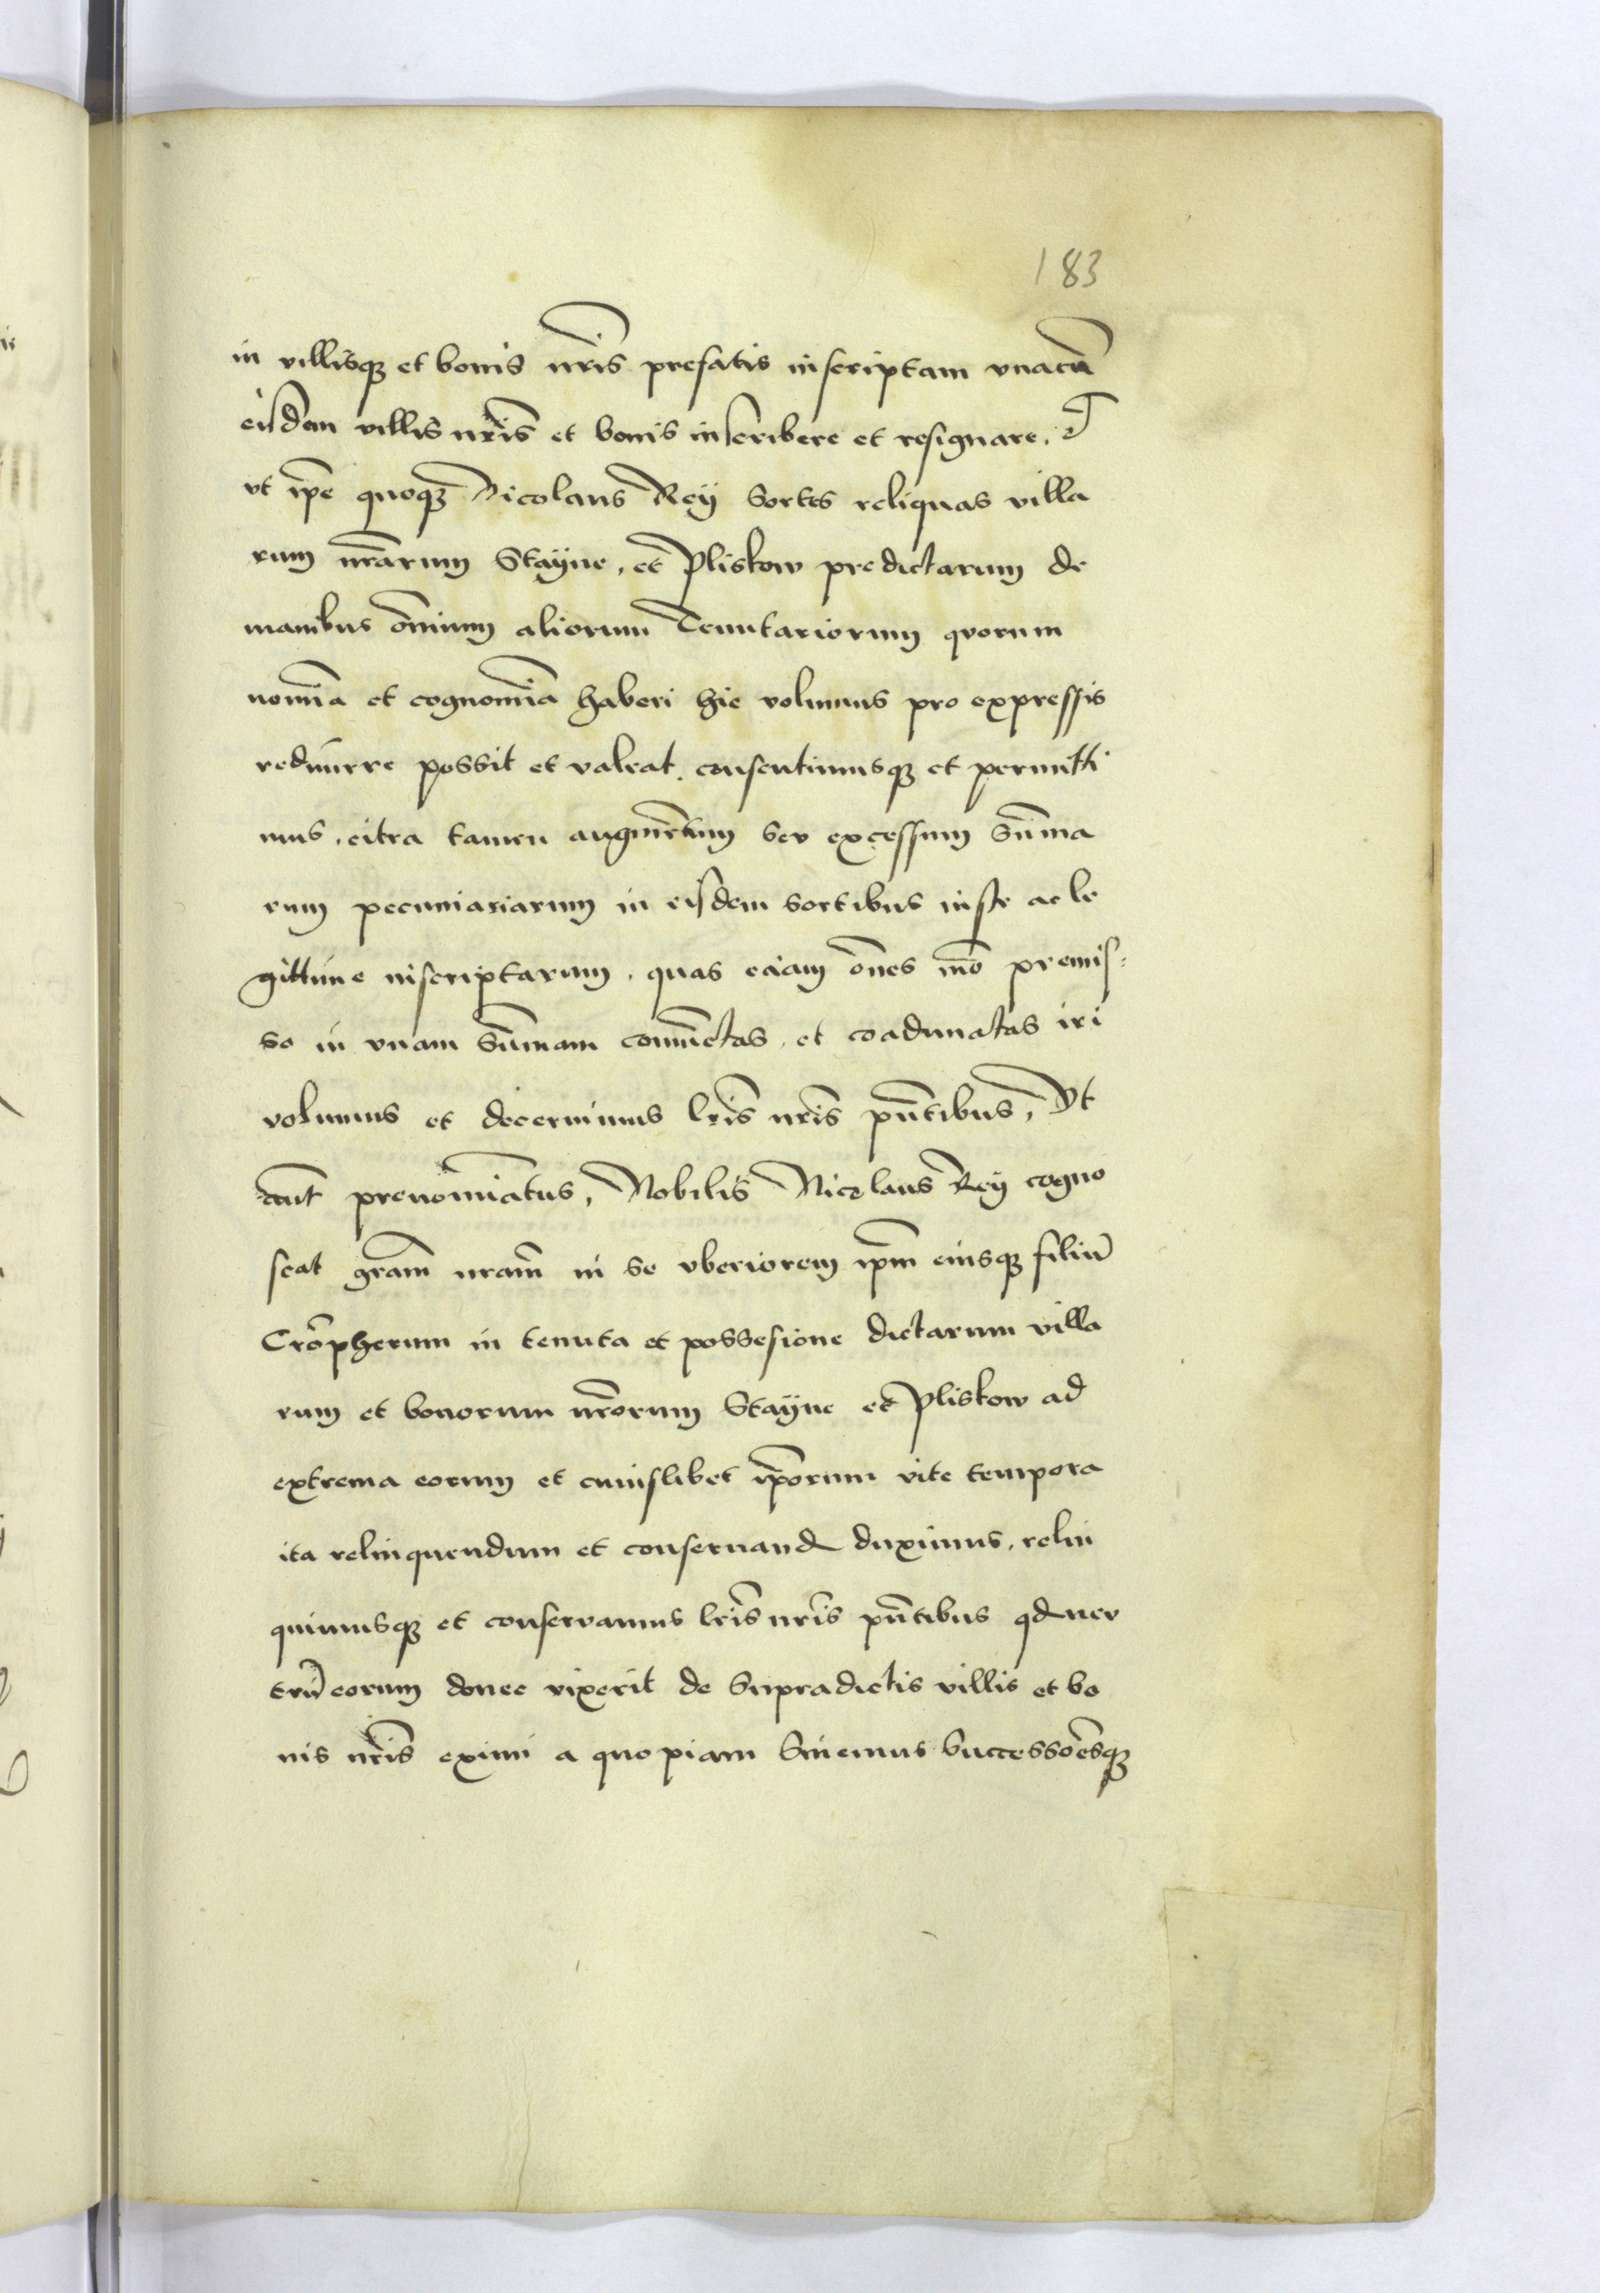 183
in villisqꝫ et bonis nr̃is prefatis inscriptam vnacũ
eisdem villis nr̃is et bonis inscribere et resignare. Et
vt ip̃e quoqꝫ Nicolaus Rey Sortes reliquas villa
rum nr̃arum Stayne, et Pliskow predictarum de
manibus om̃nium aliorum Tenutariorum quorum
nomĩa et cognomĩa haberi hic volumus pro expressis
redimere possit et valeat. consentimusqꝫ et permitti
mus, citra tamen augmẽtum seu excessum Sũma
rum pecuniariarum in eisdem sortibus iuste ac le
gittime inscriptarum. quas eciam oẽs mõ premis:
so in vnam Sũmam coniũctas, et coadunatas iri
volumus et decernimus lr̃is nr̃is pñtibus, Vt
aut̃ prenomiãtus, Nobilis Nicolaus Rey cogno
scat gr̃am nr̃am in se vberiorem ip̃m eiusqꝫ filiũ
Crõpherum in tenuta et possesione dictarum villa
rum et bonorum nr̃orum Stayne et Pliskow ad
extrema eorum et cuiuslibet ip̃orum vite tempora
ita relinquendum et conseruand duximus. relin
quimusqꝫ et conservamus lr̃is nr̃is pñtibus qd neu
trũ eorum donec vixerit de Supradictis villis et bo
nis nr̃is eximi a quopiam Sinemus Successoẽsqꝫ